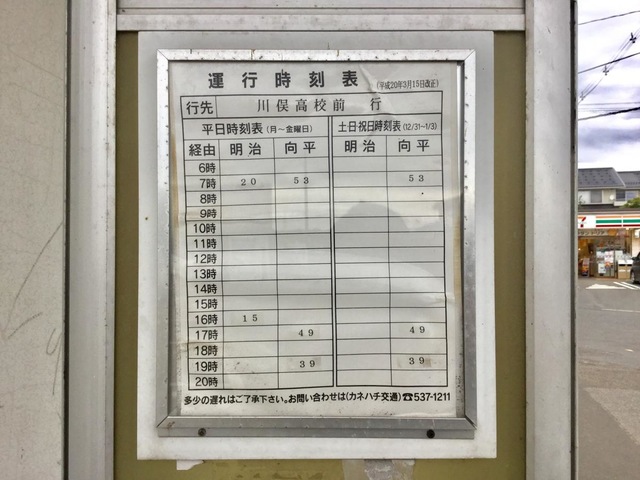 運行時刻表 (平成20年3月15日改正)
行先 川俣高校前 行
平日時刻表(月~金曜日) 土日・祝日時刻表(12/31~1/3)
経由 明治 向平 明治 向平
6時
7時 20 53 53
8時
9時
10時
11時
12時
13時
14時
15時
16時 15
17時 49 49
18時
19時 39 39
20時
多少の遅れはご了承下さい。お問い合わせは(カネハチ交通)☎537-1211
7